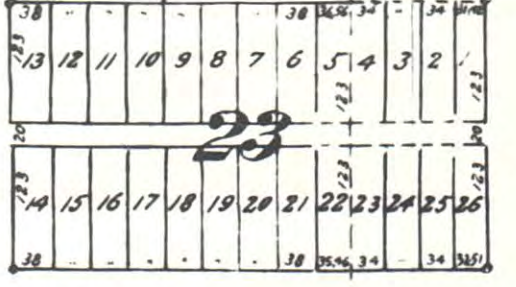 38 " " " 38 36.56 34 " 34
123 13 12 11 10 9 8 7 6 5 4 3 2 1 123
123
20 23 20
123 14 15 16 17 18 19 20 21 22 23 24 25 26 123
123
38 " " " " 38 35.46 34 " 34 32.51